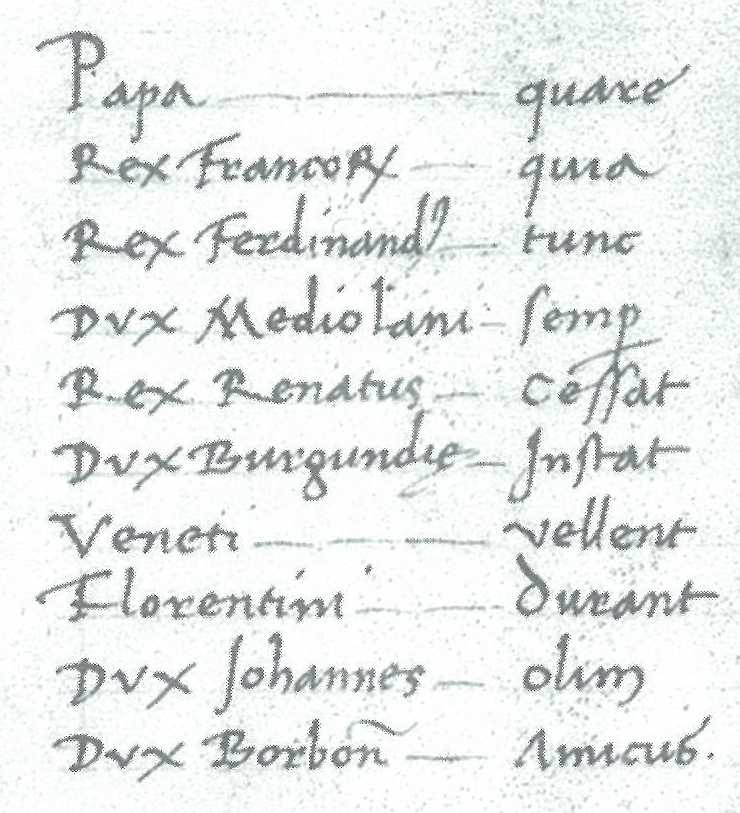 Papa — quare
Rex Francoꝝ — quia
Rex Ferdinandꝰ — tunc
Dvx Mediolani — semp
Rex Renatus — cessat
Dvx Burgundie — Instat
Veneti — vellent
Florentini — durant
Dvx Johannes — olim
Dvx Borboñ — Amicus.